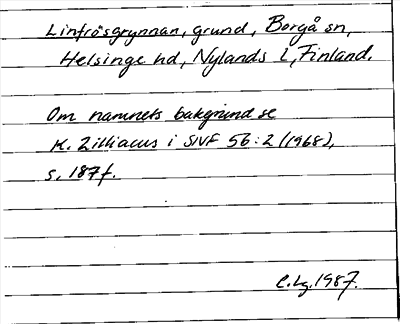 Linfrösgrynnan, grund, Borgå sn,
Helsinge hd, Nylands l, Finland.
Om namnets bakgrund se
K. Zilliacus i SNF 56:2 (1968),
s. 187 f.
C.Lg. 1987.